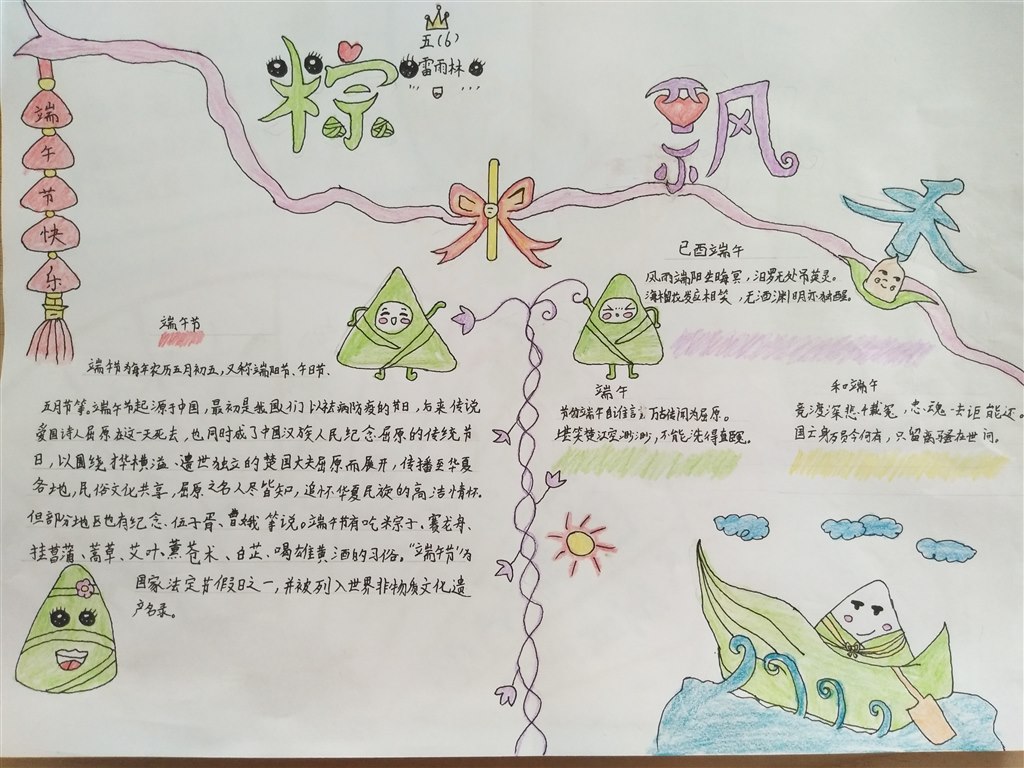 粽
五(6)
雷雨林
飘
香
端
午
节
快
乐
端午节
端午节为每年农历五月初五,又称端阳节、午日节、
五月节等。端午节起源于中国,最初是我国人们以祛病防疫的节日,后来传说
爱国诗人屈原在这一天死去,也同时成了中国汉族人民纪念屈原的传统节
日,以围绕才华横溢、遗世独立的楚国大夫屈原而展开,传播至华夏
各地,民俗文化共享,屈原之名人尽皆知,追怀华夏民族的高洁情怀。
但部分地区也有纪念伍子胥、曹娥等说。端午节有吃粽子、赛龙舟、
挂菖蒲、蒿草、艾叶、薰苍术、白芷、喝雄黄酒的习俗。“端午节”为
国家法定节假日之一,并被列入世界非物质文化遗
产名录。
已酉端午
风雨端阳生晦冥,汨罗无处吊英灵。
海榴花发应相笑,无酒渊明亦独醒。
端午
节分端午自谁言,万古传闻为屈原。
堪笑楚江空渺渺,不能洗得直臣冤。
和端午
竞渡深悲千载冤,忠魂一去讵能还。
国亡身殒今何有,只留离骚在世间。